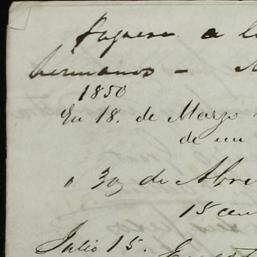 a l
hermanos -
1850
En 18. de Marzo
de un
30 de Abre
15 cen
Julio 15.